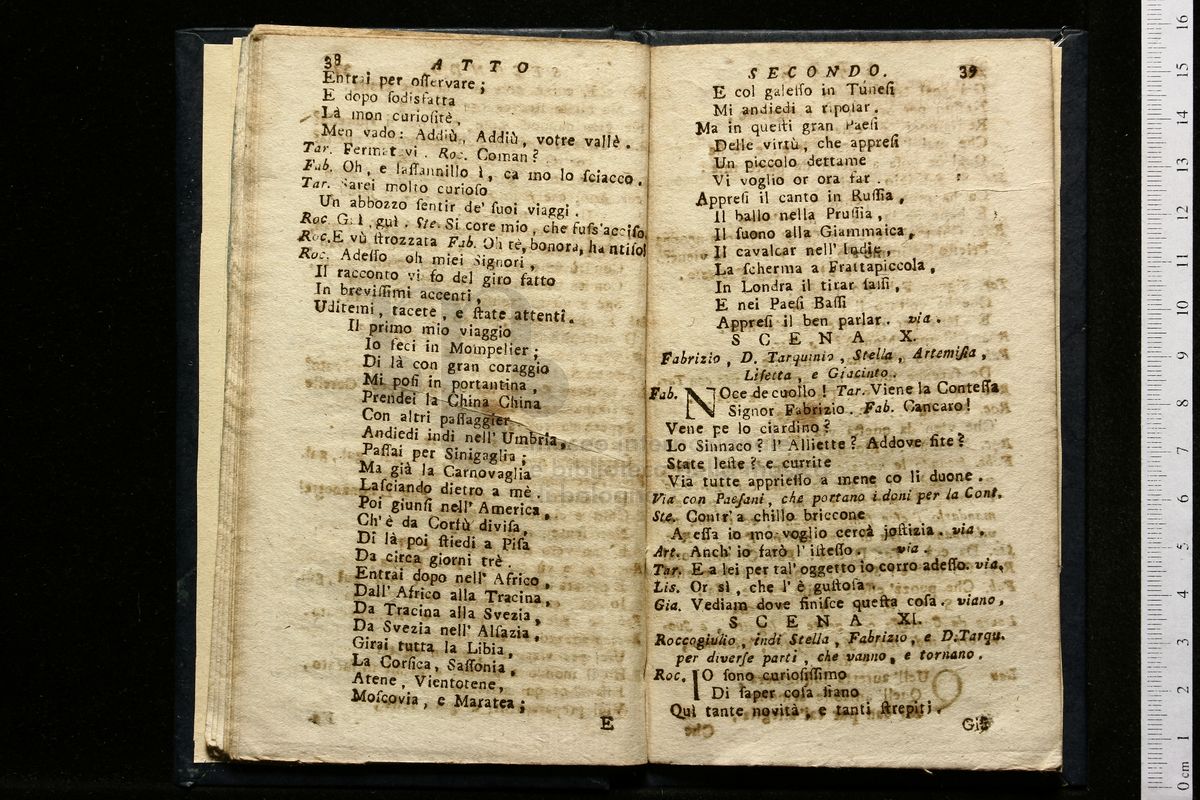 38 ATTO
Entrai per oſſervare;
E dopo ſodisfatta
La mon curioſitè,
Men vado: Addiù, Addiù, votre vallè.
Tar. Fermatevi. Roc. Coman?
Fab. Oh, e laſſannillo ì, ca mo lo ſciacco.
Tar. Sarei molto curioſo
Un abbozzo ſentir de' ſuoi viaggi.
Roc. guì. Ste. Si core mio, che fuſs'acciſo
Roc. E vù ſtrozzata Fab. Oh tè, bonora, ha ntiſo!
Roc. Adeſſo oh miei Signori,
Il racconto vi fo del giro fatto
In breviſſimi accenti,
Uditemi, tacete, e ſtate attenti.
Il primo mio viaggio
Io feci in Mompelier;
Di là con gran coraggio
Mi poſi in portantina,
Prendei la China China
Con altri paſſaggier
Andiedi indi nell' Umbria,
Paſſai per Sinigaglia;
Ma già la Carnovaglia
Laſciando dietro a mè.
Poi giunſi nell' America,
Ch'è da Corfù diviſa,
Di là poi ſtiedi a Piſa
Da circa giorni trè.
Entrai dopo nell' Africo,
Dall' Africo alla Tracina,
Da Tracina alla Svezia,
Da Svezia nell' Alſazia,
Girai tutta la Libia,
La Corſica, Saſſonia,
Atene, Vientotene,
Moſcovia, e Maratea;
E
SECONDO. 39
E col galeſſo in Tuneſi
Mi andiedi a ripoſar.
Ma in queſti gran Paeſi
Delle virtù, che appreſi
Un piccolo dettame
Vi voglio or ora far.
Appreſi il canto in Ruſſia,
Il ballo nella Pruſſia,
Il ſuono alla Giammaica,
Il cavalcar nell' Indie,
La ſcherma a Frattapiccola,
In Londra il tirar ſaſſi,
E nei Paeſi Baſſi
Appreſi il ben parlar. via.
SCENA X.
Fabrizio, D. Tarquinio, Stella, Artemiſia,
Liſetta, e Giacinto.
Fab. NOce de cuollo! Tar. Viene la Conteſſa
Signor Fabrizio. Fab. Cancaro!
Vene pe lo ciardino?
Lo Sinnaco? l' Alliette? Addove ſite?
State leſte? e currite
Via tutte apprieſſo a mene co li duone.
Via con Paeſani, che portano i doni per la Cont.
Ste. Contr'a chillo briccone
A eſſa io mo voglio cercà joſtizia. via.
Art. Anch' io farò l' iſteſſo. via.
Tar. E a lei per tal' oggetto io corro adeſſo. via.
Lis. Or sì, che l' è guſtoſa
Gia. Vediam dove finiſce queſta coſa. viano.
SCENA XI.
Roccogiulio, indi Stella, Fabrizio, e D. Tarqu.
per diverſe parti, che vanno, e tornano.
Roc. IO ſono curioſiſſimo
Di ſaper coſa ſiano
Quì tante novità, e tanti ſtrepiti.